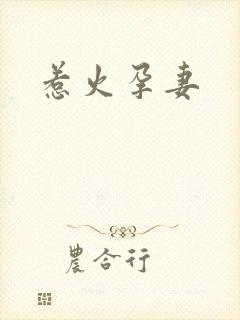 惹火孕妻
農合行